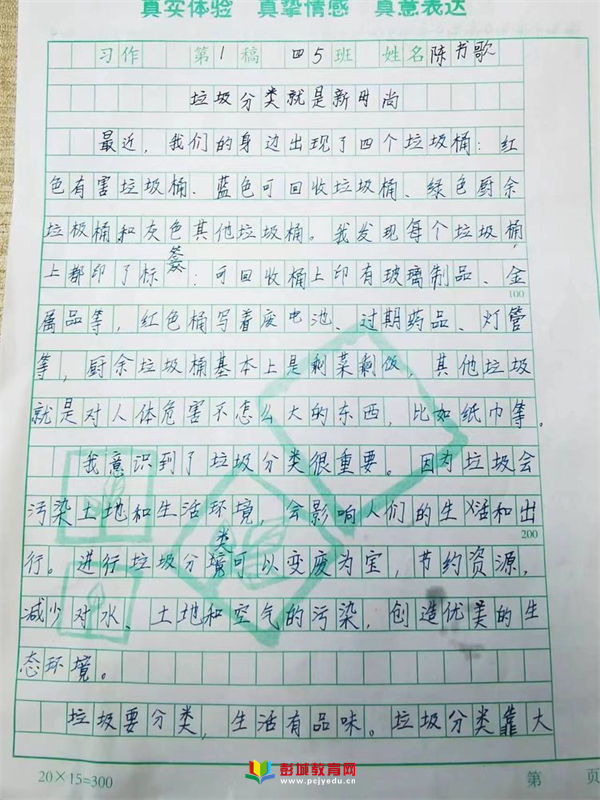 真实体验 真挚情感 真意表达
习作 第1稿 四5班 姓名陈书歌
垃圾分类就是新时尚
最近，我们的身边出现了四个垃圾桶：红
色有害垃圾桶、蓝色可回收垃圾桶、绿色厨余
垃圾桶和灰色其他垃圾桶。我发现每个垃圾桶
上都印了标签：可回收桶上印有玻璃制品、金
100
属品等，红色桶写着废电池、过期药品、灯管
等，厨余垃圾桶基本上是剩菜剩饭，其他垃圾
就是对人体危害不怎么大的东西，比如纸巾等。
我意识到了垃圾分类很重要。因为垃圾会
污染土地和生活环境，会影响人们的生活和出
200
行。进行垃圾分类可以变废为宝，节约资源，
减少对水、土地和空气的污染，创造优美的生
态环境。
垃圾要分类，生活有品味。垃圾分类靠大
20×15=300
彭城教育网
www.pcjyedu.cn
第 页